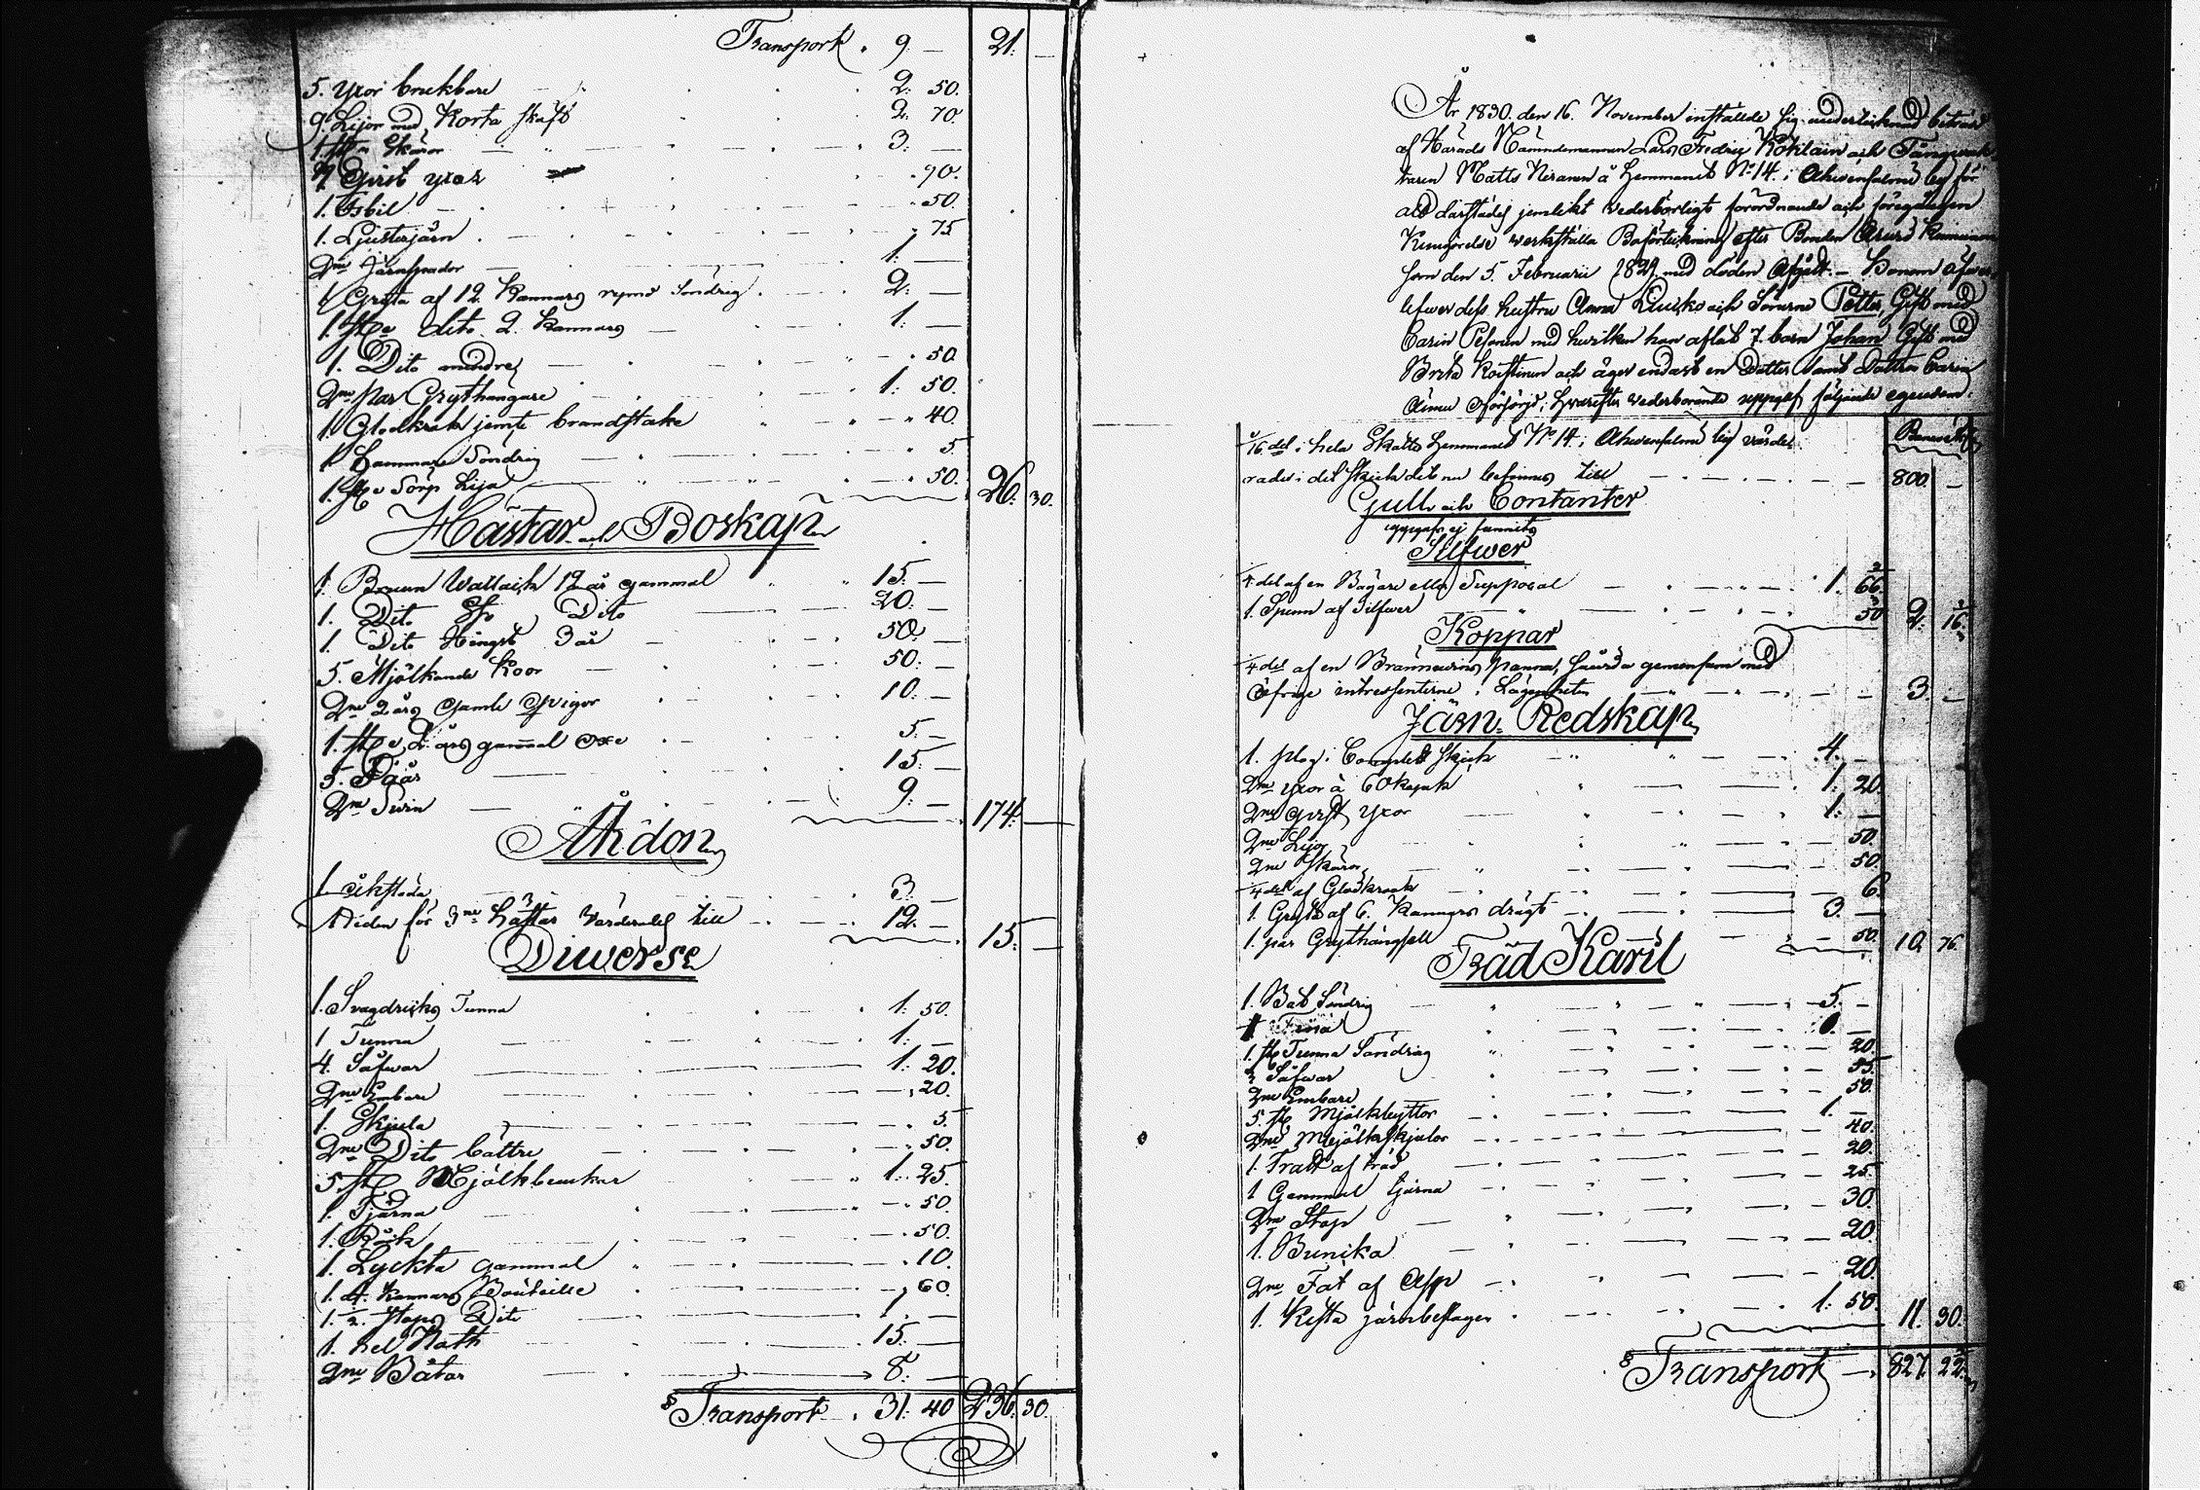 Transport . 9 — 21. —
5. Yxor brukbare 2. 50.
9. Lijor med Korta skaft 2. 70.
1. st. Skäror 3. —
4 Girst yxor 90.
1. Isbil 50.
1. Ljusterjärn 75
2ne Järnspador 1. —
1 Gryta af 12. Kannors rymd Söndrig 2. —
1. st. dito 2. Kannors 1. —
1. Dito mindre 50.
2ne Par Grythängare 1. 50.
1. Glodkrok jemte brandstake 40.
1 Hammare Söndrig 5.
1. st. Lija 50. 26. 30.
Hästar och Boskap
1. Brun Wallack 12 år gammal 15. —
1. Dito Dito 20. —
1 Dito Hingst 3 år 50. —
5. Mjölkande Koor 50. —
2ne 2 års Gamle Qvigor 10. —
1. st. års gammal Oxe 5. —
5. Får 15. —
2ne Svin 9. — 174. —
Åkdon
1 åksläda 3. —
Riden för 3ne hästar värderades till 12. — 15. —
Diverse
1. Svagdricks Tunna 1. 50.
1 Tunna 1. —
4. Såfwar 1. 20.
2ne Embare 20.
1. Skjula 5.
2ne Dito bättre 50.
5. st. Mjölkbunkar 1. 25.
1. Tjärna 50.
1. Råck 50.
1. Lyckta gammal 10.
1. 4. Kannors Bouteille 60.
1. 2. Stops Dito 1. —
1. hel Noth 15. —
2ne Båtar 8. —
Transport . 31. 40 236. 30.
År 1830. den 16. November inställde sig undertecknad biträdd
af Härads Nämndemannen Lars Fredric
taren Matts Niranen å Hemmanet No 14. i Ahvensalmi by för
att därstädes jemlikt vederbörligt förordnande och föregången
Kungörelse werkställa Boförteckning efter Bonden
som den 5. Februarii 1829 med döden Afgått. — Honom öfwer
lefwer dess hustru Anna och Sönerne Petter, Gift med
Carin Pesonen med hwilken han aflat 7. barn Johan Gift med
Brita Koistinen och äger endast en Dotter samt Dottren Carin
oförsörjd; hvarefter vederbörande uppgaf följande egendom.
16 del i hela Skatte Hemmanet No 14. i Ahvensalmi by värde
rades i det skick det nu befinnes till 800. —
Gull och Contanter
uppgafs ej funnits
Silfwer
4 del af en Bägare eller Supposeal 1. 66.
1. Spenn af Silfwer 50 2. 16.
Koppar
4 del af en Bränwins panna, hwarda gemensam med
öfrige intressenterne i Lägenheten 3. —
Järn Redskap
1. plog i Complett skick 4. —
2ne yxor à 60 kopek 1. 20.
2ne girst yxor 1. —
2ne Lijor 50.
2ne Skäror 50.
4 del af Glodkrook 6.
1. Gryta af 6. Kannors drägt 3. —
1. par Grythängsell 50. 10. 76.
Träd Käril
1. Båt Söndrig 5. —
1. st. Tunna Söndrig 20.
3 Såfwar 55.
2ne Embare 50.
5. st. Mjölkbyttor 1. —
2ne Mjölkskjulor 40.
1. Tratt af träd 20.
1 Gammal tjärna 25.
2ne Stop 30.
1. Bunika 20.
2ne Fat af Asp 20.
1. Kista järnbeslagen 1. 50. 11. 30.
Transport 827. 22.